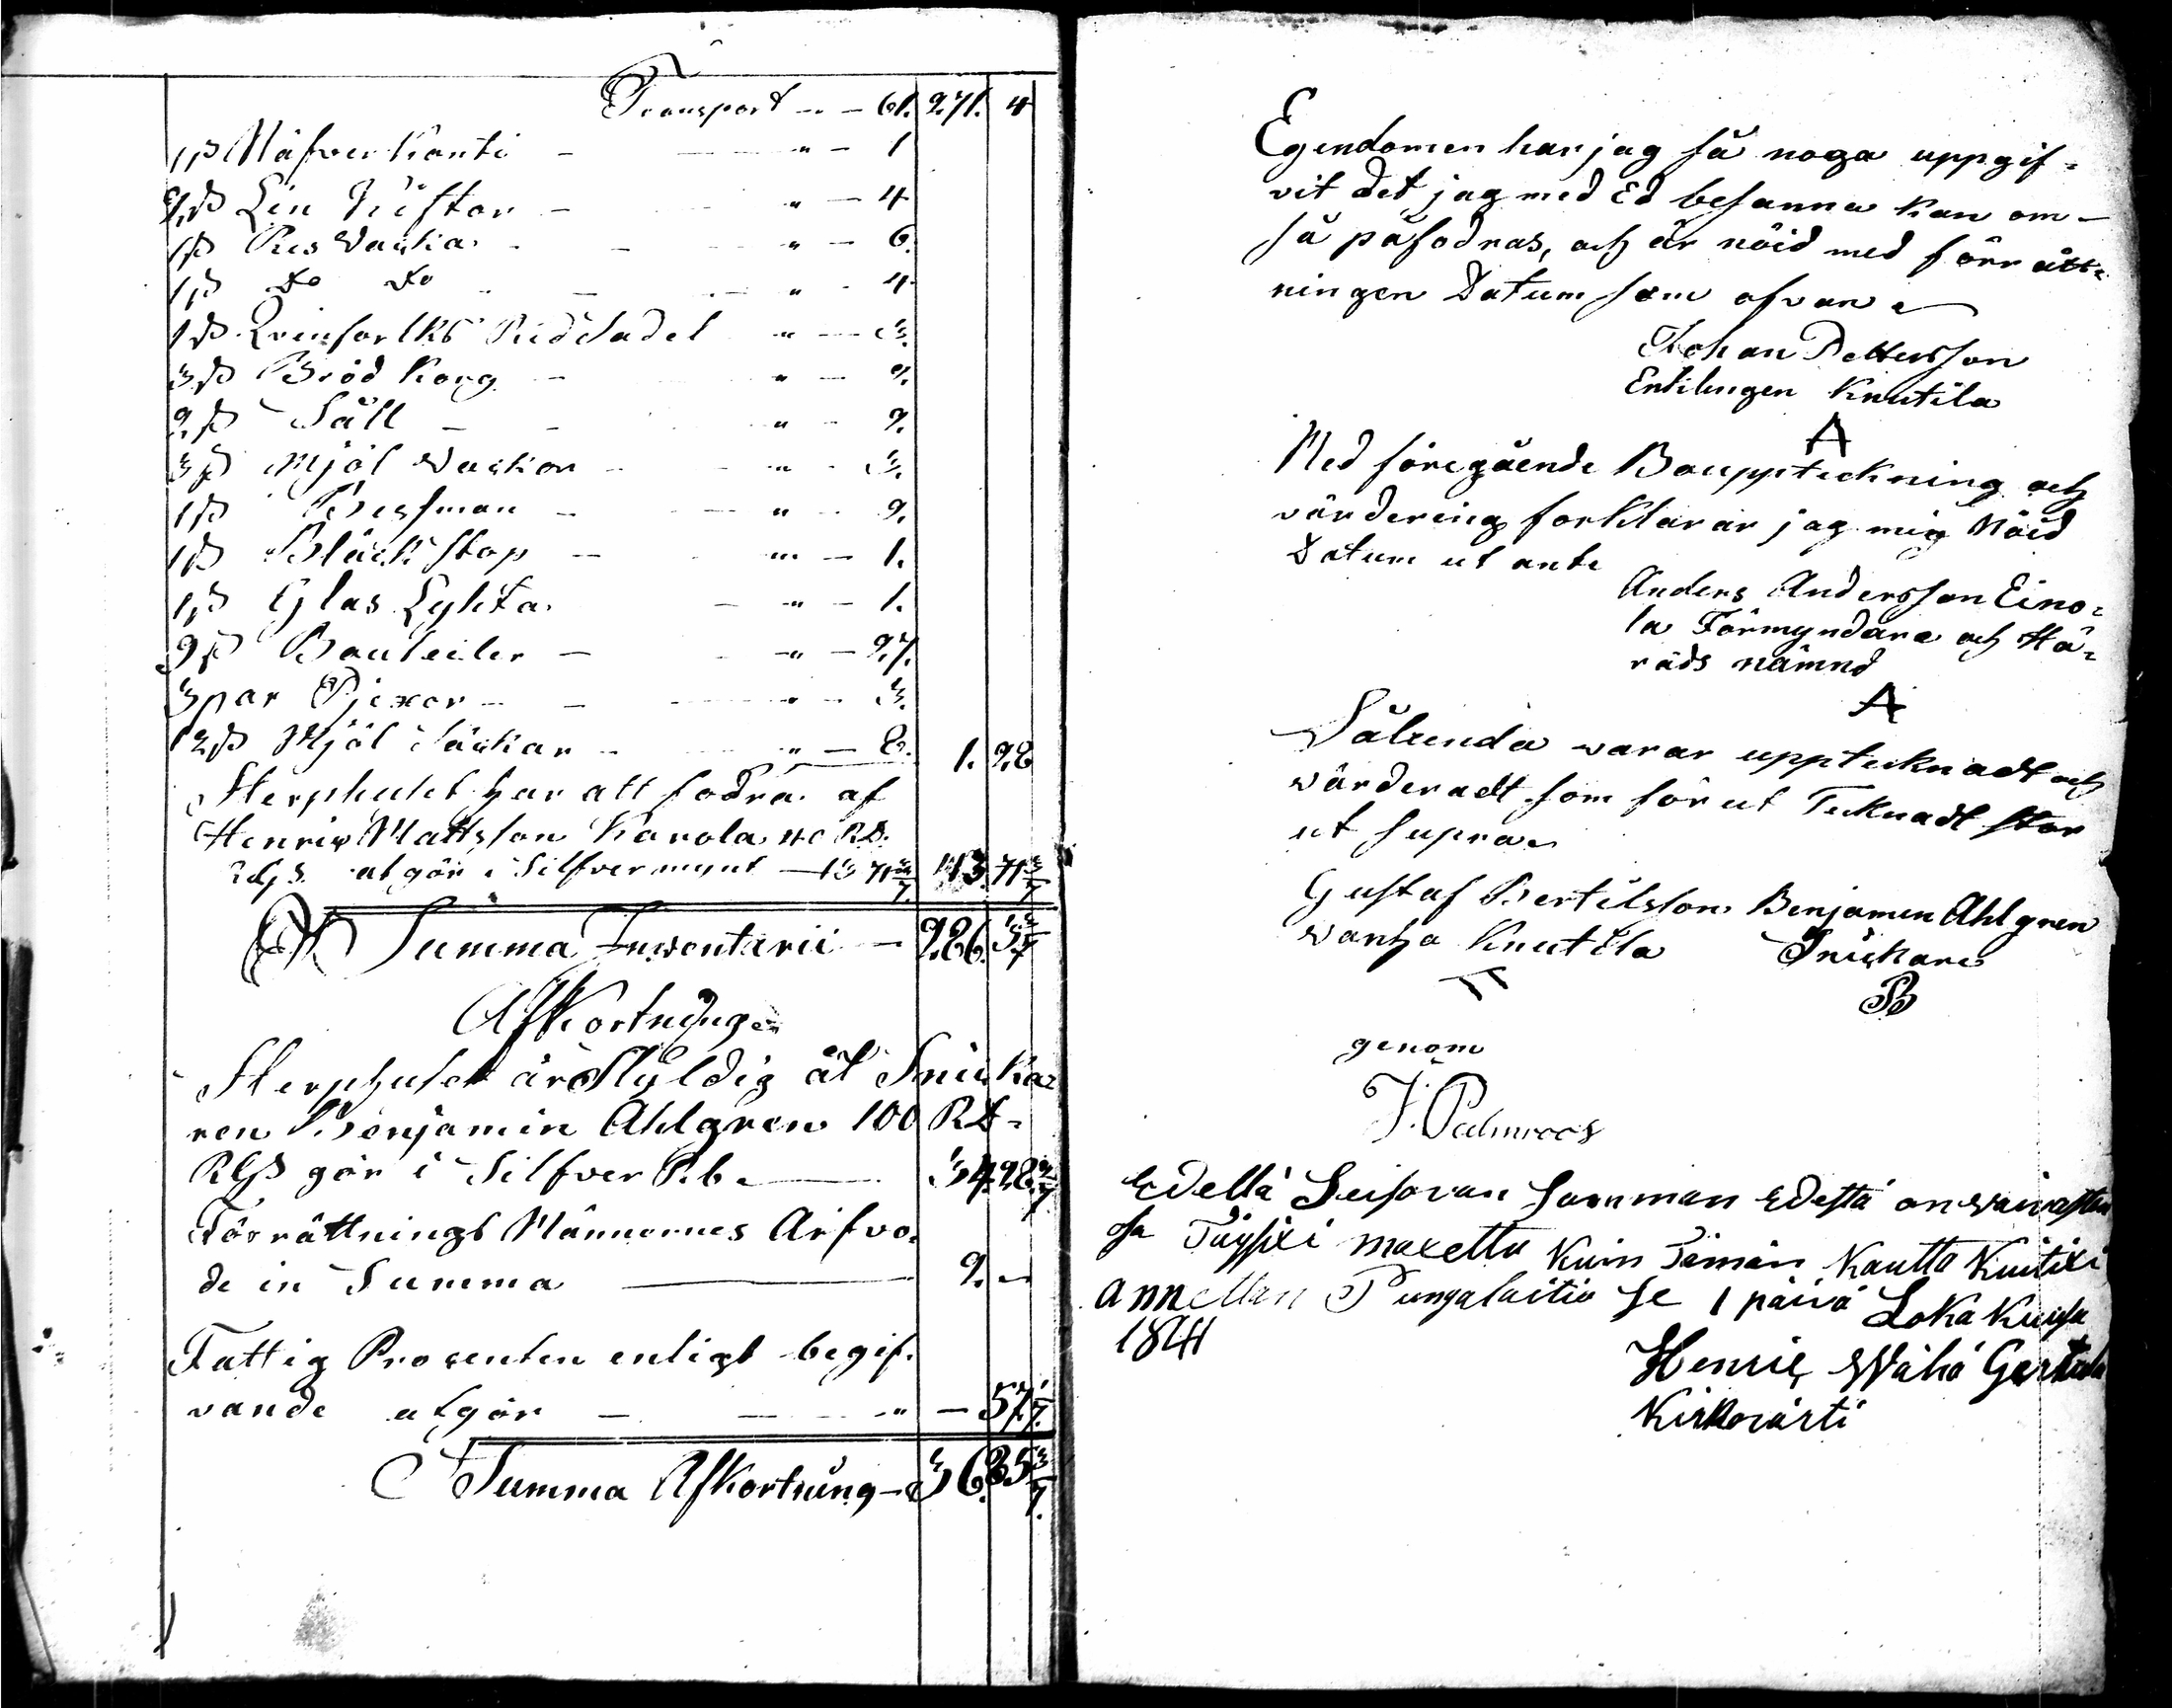 Transport -- - 61. 271. 4
1 st Näfver Konti - " - 1
2 st Lin Häcklor - " - 4
1 st Res Vacka - " - 6.
1 st do do - " - 4
1 st Qvinfolks Ridsadel " - 3.
3 st Bröd Korg - " - 2.
2 st Såll - " - 2.
3 st Mjöl Vackor - " - 3.
1 st Besman - " - 2.
1 st Bläck stop - " - 1.
1 st Glas Lykta - " - 1.
9 st Bouteiler - " - 27.
3 par Pjexor - " - 3.
12 st Mjöl Säckar - " - 8. 1. 28
Sterphuset har att fodra af
Henric Mattsson Karola 40 RD.
Rgs. utgör i Silfvermynt - 13 71 3/7 13. 71 3/7
Summa Inventarii - 286. 3 3/7
Afkortning
Sterphuset är Skyldig åt Snicka=
ren Benjamin Ahlgren 100 RD=
RGS gör i Silfver Rb. 34. 28 4/7
Förrättnings Männernes Arfvo=
de in Summa 2. -
Fattig Procenten enligt begif=
vande utgör - " - 57 1/7.
Summa Afkortning - 36. 85 5/7.
Egendomen har jag så noga uppgif=
vit det jag med Ed besanna kan om -
så påfodras, och är nöid med förrätt=
ningen Datum som ofvan
Johan Pettersson
Enklingen Knutila
A
Med föregående Bouppteckning och
värdering forklarar jag mig Nöid
Datum ut ante
Anders Andersson Eino=
la Förmyndare och Hä=
rads nämnd
A
Sålunda varar upptecknadt och
värderadt som förut Tecknadt står
ut supra
Gustaf Bertilsson Benjamin Ahlgren
Vanha Knutila Snickare
B
genom
J. Palmroos
Edellä Seisovan Somman Edestä on vaivasten
osa Täysixi maxettu Kuin Tämän Kautta Kuitixi
annettan Pungalaitio se 1 päivä Loka Kuusa
1841
Henric Wähä Gertula
Kirkovärti